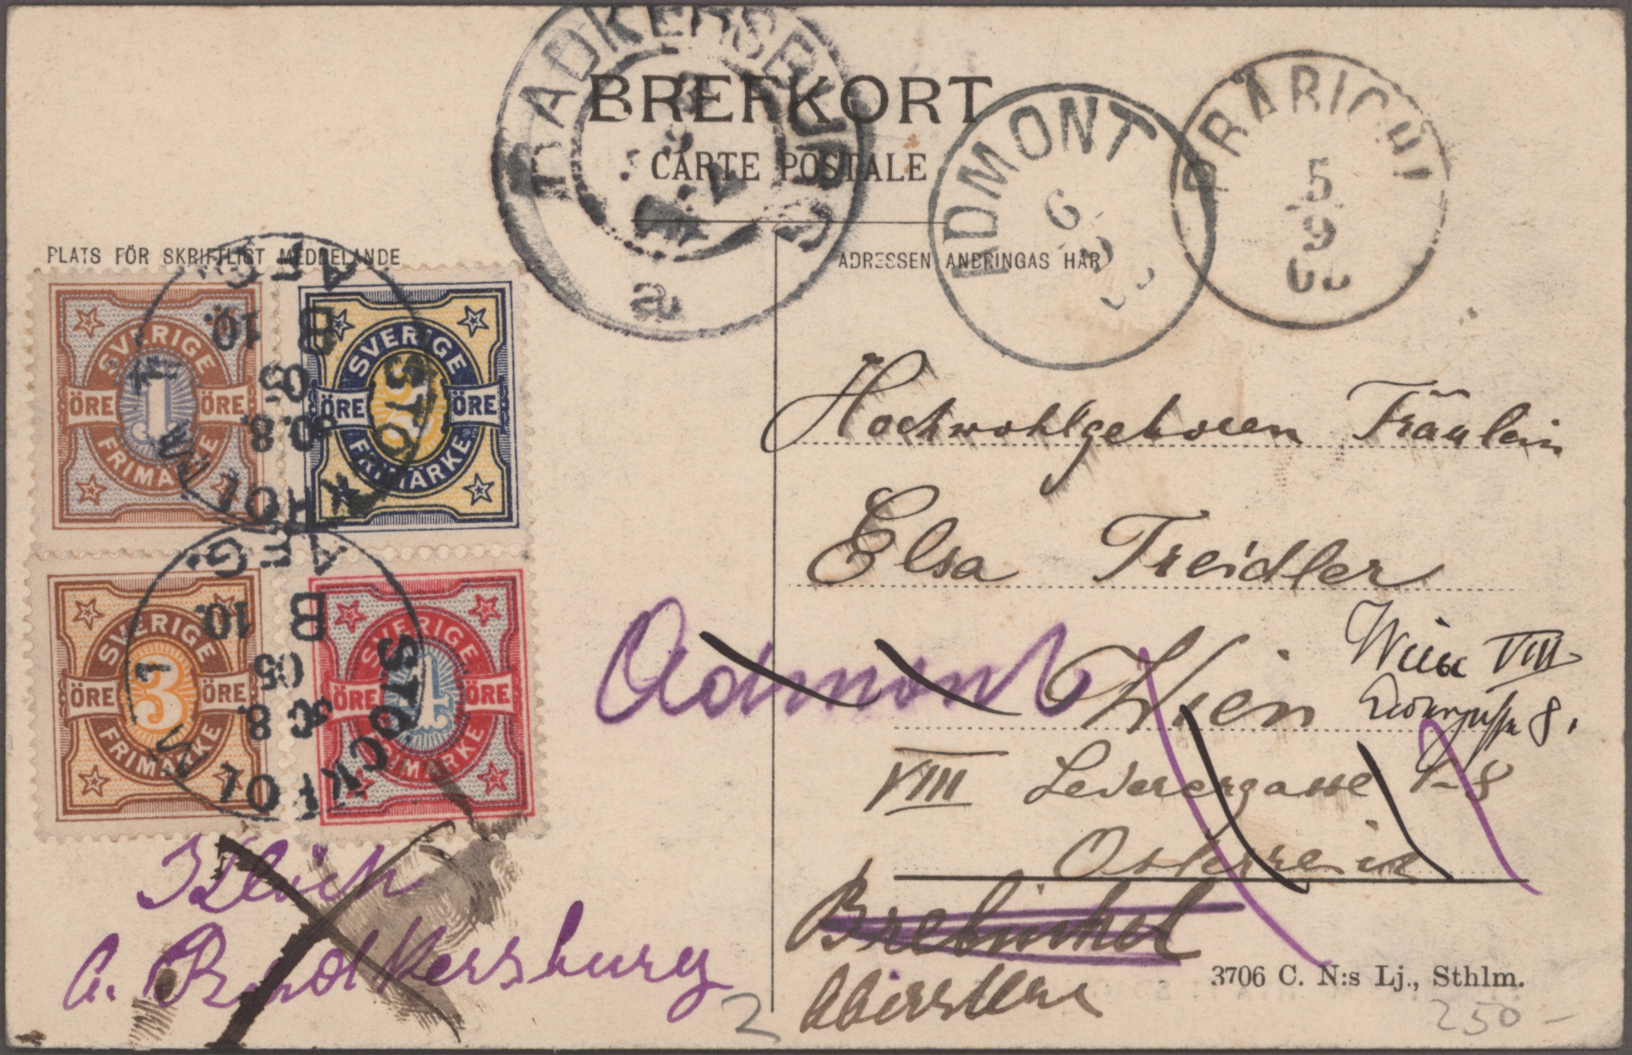 BREFKORT
CARTE POSTALE
PLATS FÖR SKRIFTLIGT MEDDELANDE
ADRESSEN ANBRINGAS HÄR
RADKERSBURG
a
ADMONT
6
9
PRÄBICHL
5
9
05
SVERIGE
1
ÖRE ÖRE
FRIMÄRKE
SVERIGE
ÖRE ÖRE
FRIMÄRKE
SVERIGE
3
ÖRE ÖRE
FRIMÄRKE
SVERIGE
4
ÖRE ÖRE
FRIMÄRKE
STOCKHOLM 1
30.8.
05
B 10.
AFG.
STOCKHOLM 1
30.8.
05
B 10.
AFG.
Hochwohlgeboren Fräulein
Elsa Treidler
Admont
Wien
Wien VIII
8.
VIII Lederergasse
Österreich
Radkersburg
3706 C. N:s Lj., Sthlm.
2
250-